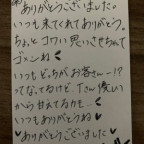 ありがとうございました。
いつも来てくれてありがとう。
ちょっとコワい思いさせちゃって
ゴメンね
いつもどっちがお客さんー!?
ってなってるけど、Tさん優しい
から甘えてるかも…
いつもありがとうね♥
♥ありがとうございました♥